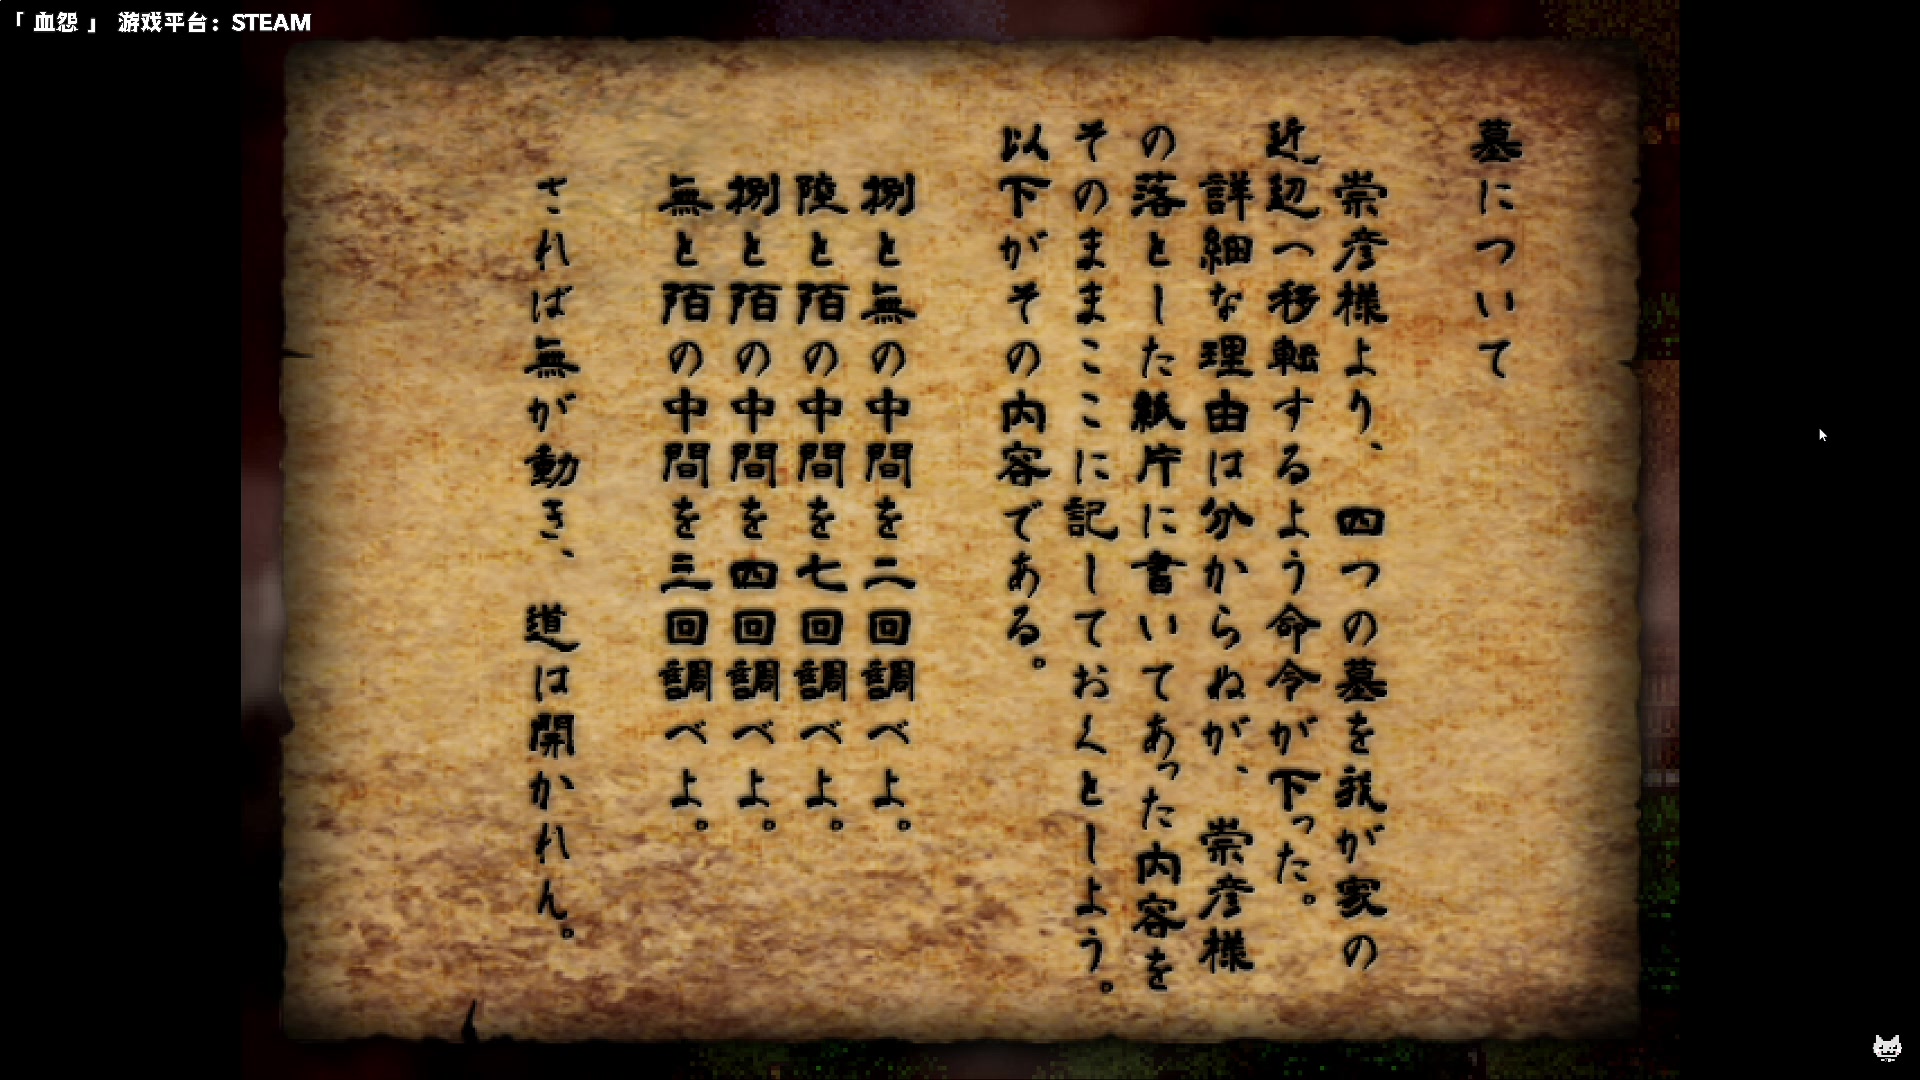 「 血怨 」 游戏平台：STEAM
墓について
崇彦様より、四つの墓を我が家の
近辺へ移転するよう命令が下った。
詳細な理由は分からぬが、崇彦様
の落とした紙片に書いてあった内容を
そのままここに記しておくとしよう。
以下がその内容である。
捌と無の中間を二回調べよ。
陸と陌の中間を七回調べよ。
捌と陌の中間を四回調べよ。
無と陌の中間を三回調べよ。
されば無が動き、道は開かれん。